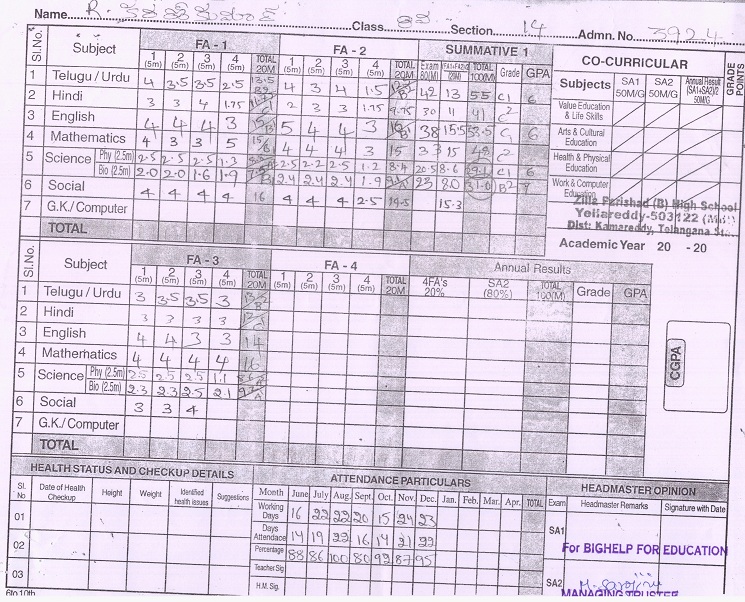 Name. R.
Class Section 14 Admn. No. 3924
Sl.No. Subject FA - 1 FA - 2 SUMMATIVE 1
1 (5m) 2 (5m) 3 (5m) 4 (5m) TOTAL 20M 1 (5m) 2 (5m) 3 (5m) 4 (5m) TOTAL 20M Exam 80(M) FA1+FA2÷2 (20M) TOTAL 100(M) Grade GPA
1 Telugu / Urdu 4 3.5 3.5 2.5 13.5 B2 4 3 4 1.5 42 13 55 C1 6
2 Hindi 3 3 4 1.75 2 3 3 1.75 9.75 30 11 41 C2
3 English 4 4 4 3 15 5 4 4 3 16 38 15.5 53.5 C1 6
4 Mathematics 4 3 3 5 15 4 4 4 3 15 33 15 48 C2
5 Science Phy (2.5m) 2.5 2.5 2.5 1.3 2.5 2.2 2.5 1.2 8.4 20.5 8.6 C1 6
Bio (2.5m) 2.0 2.0 1.6 1.9 2.4 2.4 2.4 1.9 23 8.0 31.0 B2 7
6 Social 4 4 4 4 16 4 4 4 2.5 14.5 15.3
7 G.K./ Computer
TOTAL
CO-CURRICULAR GRADE POINTS
Subjects SA1 50M/G SA2 50M/G Annual Result (SA1+SA2)/2 50M/G
Value Education & Life Skills
Arts & Cultural Education
Health & Physical Education
Work & Computer Education
Zilla Parishad (B) High School
Yellareddy-503122
Dist: Kamareddy, Telangana
Academic Year 20 - 20
Sl.No. Subject FA - 3 FA - 4 Annual Results
1 (5m) 2 (5m) 3 (5m) 4 (5m) TOTAL 20M 1 (5m) 2 (5m) 3 (5m) 4 (5m) TOTAL 20M 4FA's 20% SA2 (80%) TOTAL 100(M) Grade GPA
1 Telugu / Urdu 3 3.5 3.5 3
2 Hindi 3 3 3 3
3 English 4 4 3 3 14
4 Mathematics 4 4 4 4 16
5 Science Phy (2.5m) 2.5 2.5 2.5 1.1
Bio (2.5m) 2.3 2.3 2.5 2.1
6 Social 3 3 4
7 G.K./ Computer
TOTAL
CGPA
HEALTH STATUS AND CHECKUP DETAILS
Sl. No Date of Health Checkup Height Weight Identified health issues Suggestions
01
02
03
ATTENDANCE PARTICULARS
Month June July Aug. Sept. Oct. Nov. Dec. Jan. Feb. Mar. Apr. TOTAL
Working Days 16 22 22 20 15 24 23
Days Attendace 14 19 22 16 14 21 22
Percentage 88 86 100 80 92 87 95
Teacher Sig
H.M. Sig.
HEADMASTER OPINION
Exam Headmaster Remarks Signature with Date
SA1
For BIGHELP FOR EDUCATION
SA2
MANAGING TRUSTEE
6to 10th